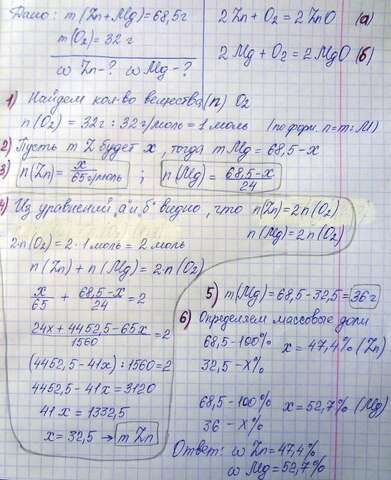 Дано: m(Zn+Mg)=68,5г
m(O₂)=32 г
ω Zn-? ω Mg-?
2 Zn+O₂=2 ZnO (а)
2 Mg+O₂=2 MgO (б)
1) Найдем кол-во вещества (n) O₂
n(O₂)=32г:32г/моль=1 моль (по форм. n=m:M)
2) Пусть m Z будет x, тогда m Mg=68,5-x
3) n(Zn)=x/65г/моль ; n(Mg)=68,5-x/24
4) Из уравнений „а" и „б" видно, что n(Zn)=2n(O₂)
n(Mg)=2n(O₂)
2·n(O₂)=2·1 моль=2 моль
n(Zn)+n(Mg)=2n(O₂)
x/65 + 68,5-x/24 =2
24x+4452,5-65x/1560 =2
(4452,5-41x):1560=2
4452,5-41x=3120
41x=1332,5
x=32,5 → m Zn
5) m(Mg)=68,5-32,5=36г
6) Определяем массовые доли
68,5-100%
32,5-x%
x=47,4% (Zn)
68,5-100%
36-x%
x=52,7% (Mg)
Ответ: ω Zn=47,4%
ω Mg=52,7%